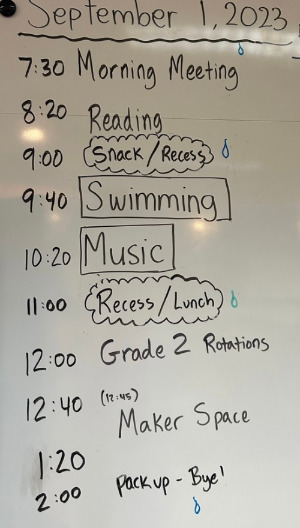 September 1, 2023
7:30 Morning Meeting
8:20 Reading
9:00 Snack/Recess
9:40 Swimming
10:20 Music
11:00 Recess/Lunch
12:00 Grade 2 Rotations
12:40 (12:45) Maker Space
1:20
2:00 Pack up - Bye!